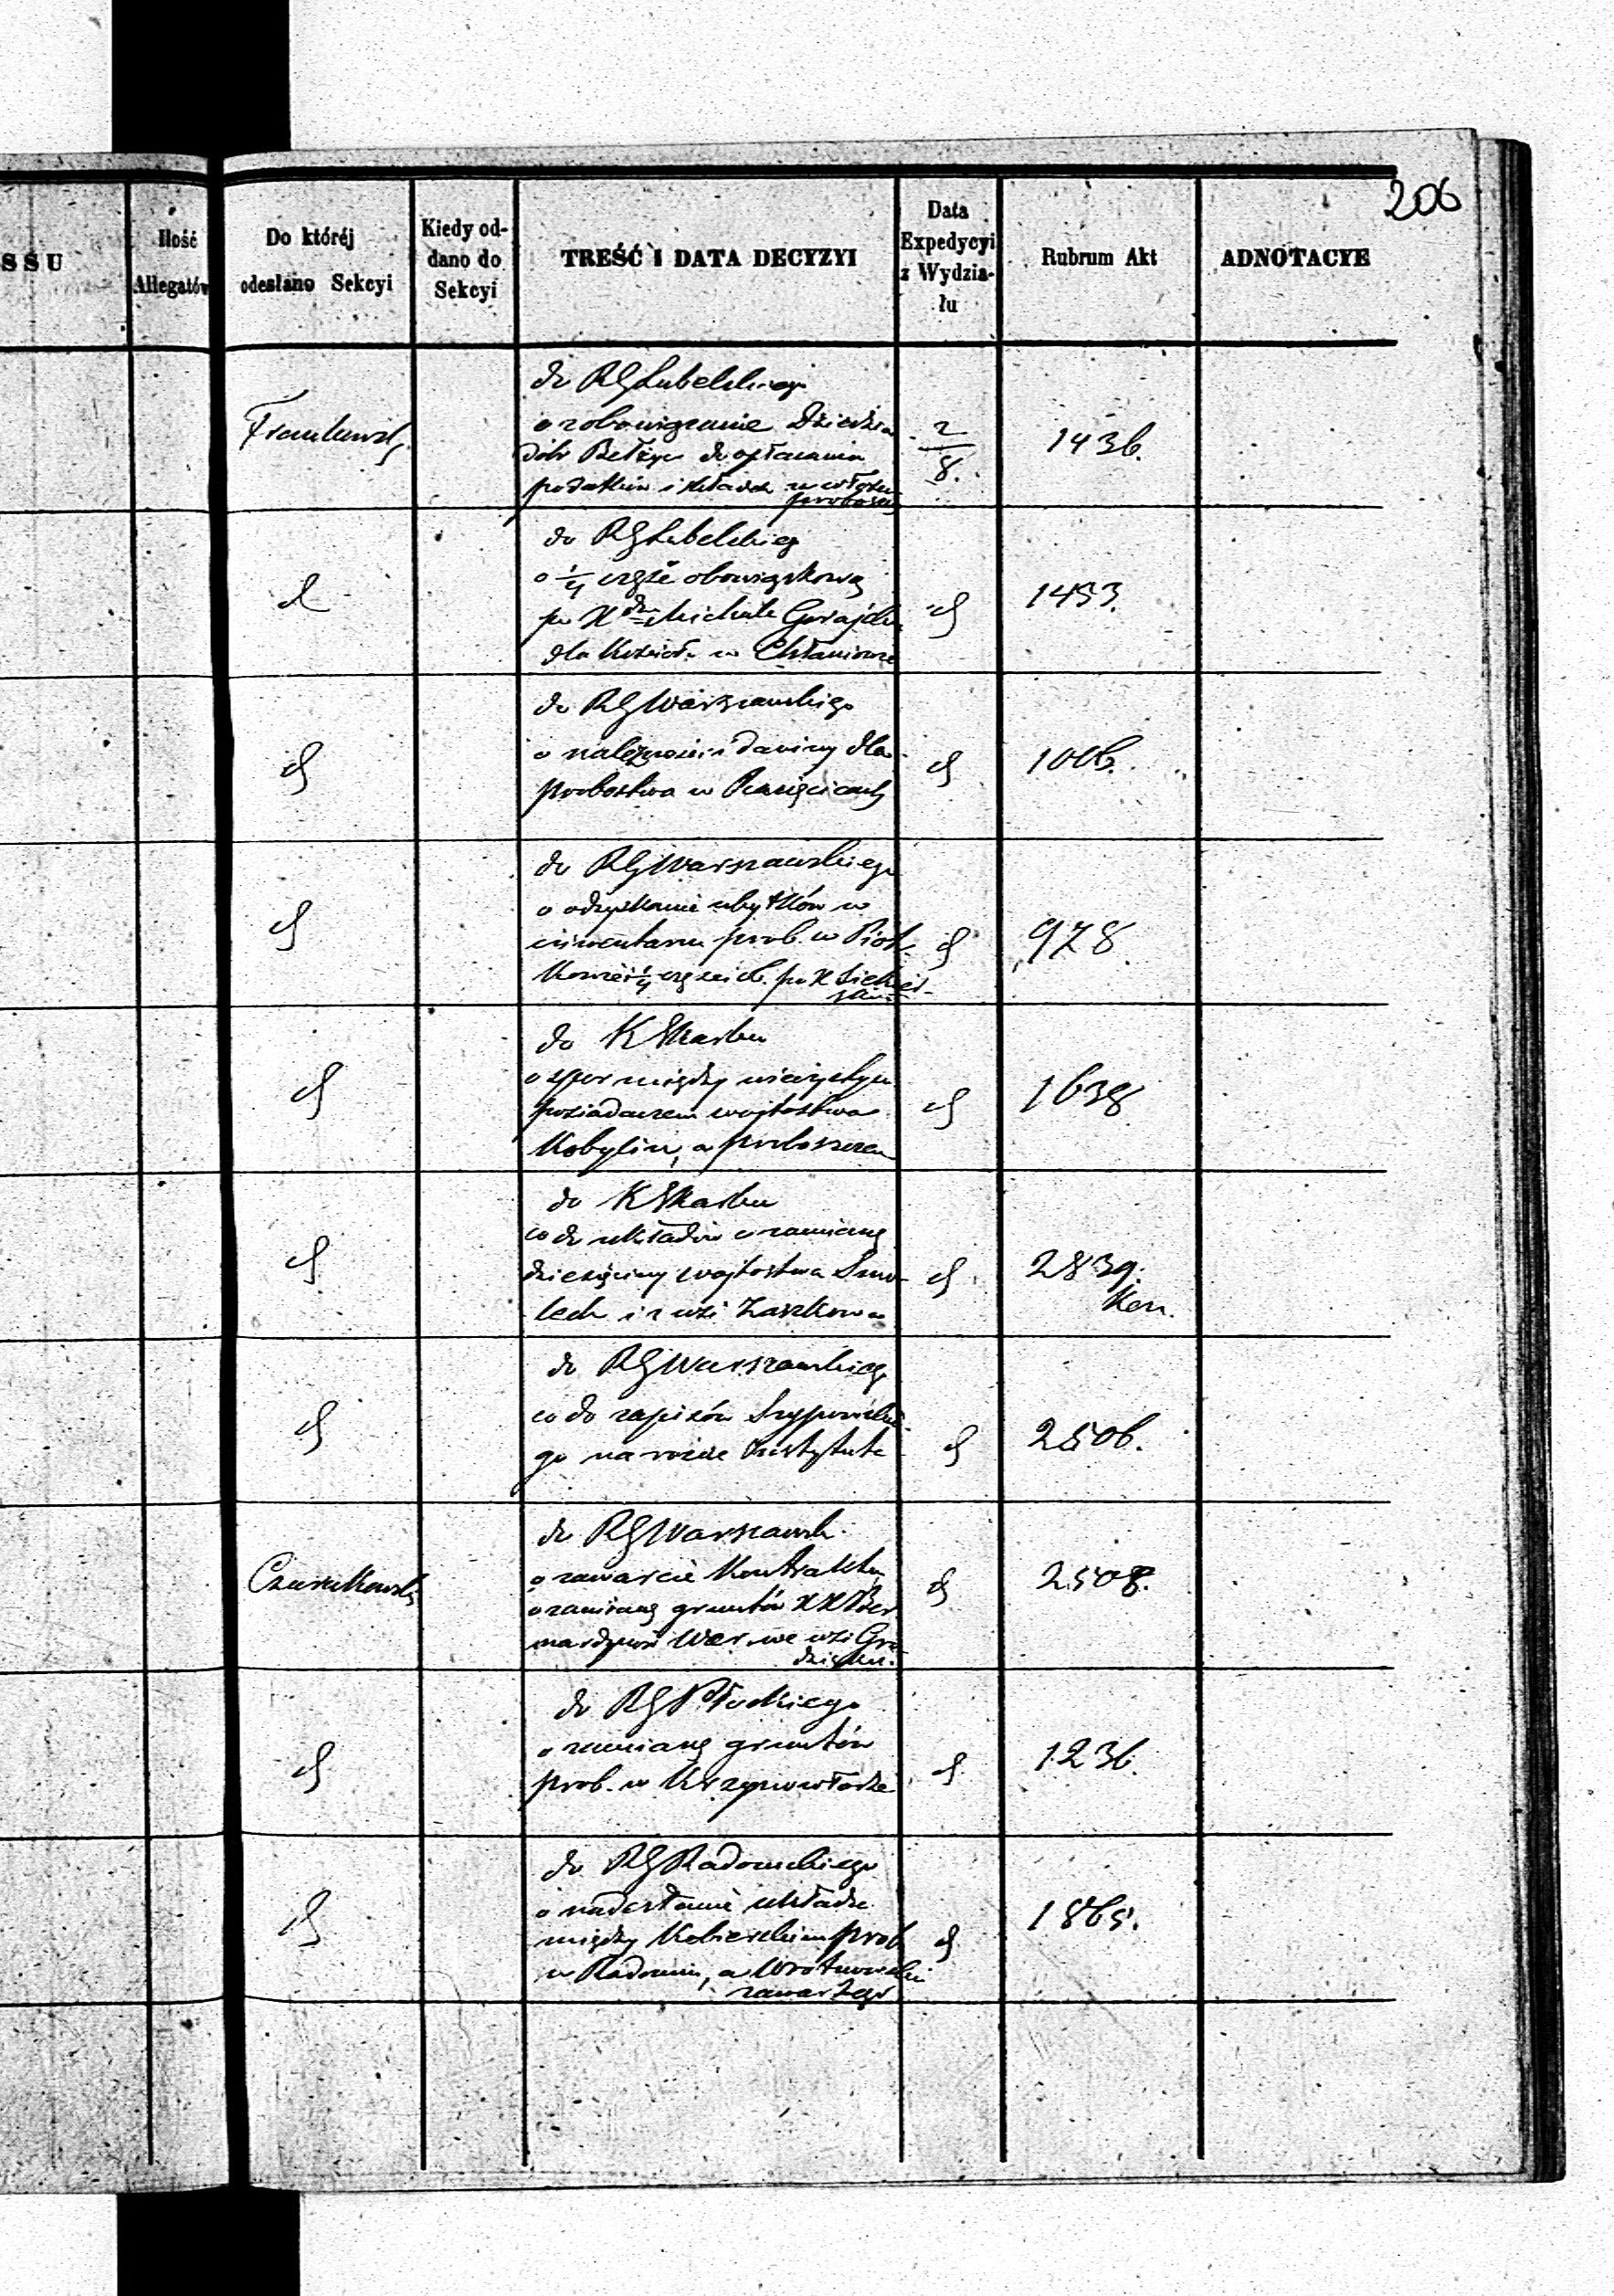 206
SSU
Ilość
Allegatów
Do któréj
odesłano Sekcyi
Kiedy od-
dano do
Sekcyi
TREŚĆ I DATA DECYZYI
Data
Expedycyi
z Wydzia-
łu
Rubrum Akt
ADNOTACYE
do RG Lubelskiego
o zobowiązanie Dziedzica
dóbr Bełżyce do opłacania
podatków i składek
2/8.
1436.
do RG Lubelskiego
o 1/4 część obowiązkową
po X Michale
dla Kościoła w Chłaniowie
1453.
do RG Warszawskiego
o należności daniny dla
probostwa w Pamięcicach
1006.
do RG Warszawskiego
o odzyskanie ubytków w
inwentarzu prob. w Piotr-
978
do K Skarbu
o spór między wieczystym
posiadaczem wojtostwa
Kobylin, a proboszczem
1638
do K Skarbu
co do układów o zamianę
dziesięciny wojtostwa Smo-
lech i z wsi Zaszkowa
2839.
Kon.
do RG Warszawskiego
co do zapisów Szypowskie
go na różne Instytuta
2506.
do RG Warszawsk.
o zawarcie Kontraktu
o zamianę gruntów XX Ber
nardynów War. we wsi Gro
dzisku.
2508.
do RG Płockiego
o zamianę gruntów
prob. w Krzynowłodze
1236.
do RG Radomskiego
o nadesłanie układu
między Kobierskim prob.
w Radomiu, a Wrotnowskim
zawartego
1865.